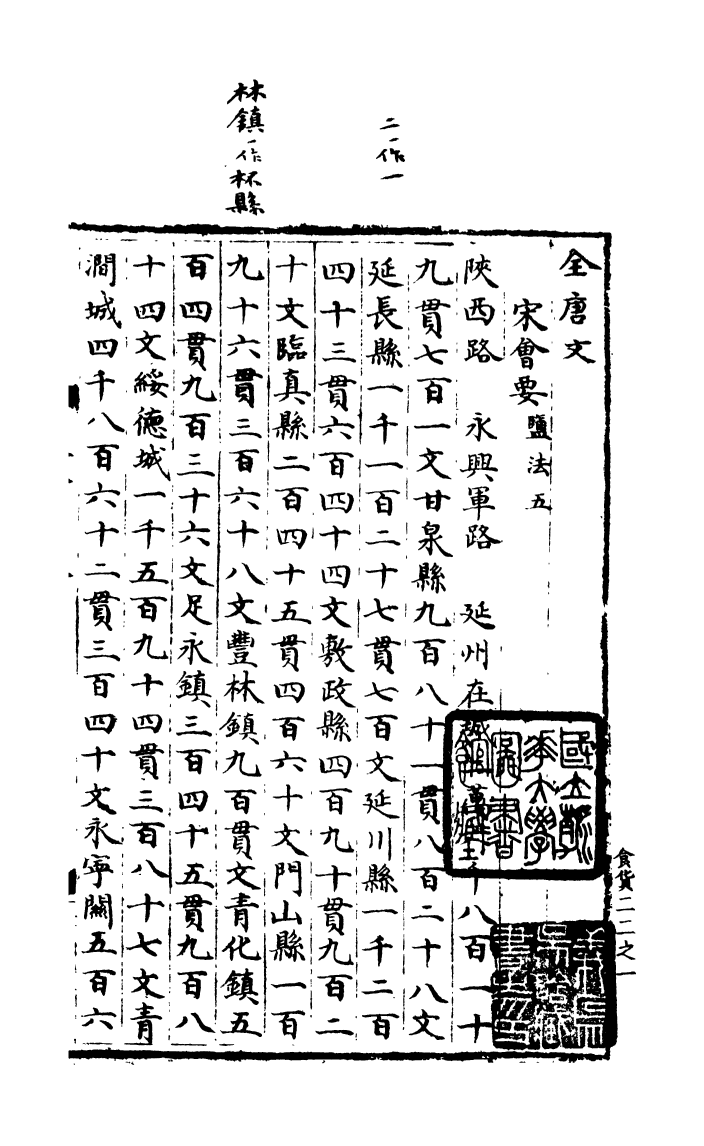 二一作一
林鎮一作林縣
全唐文
宋會要鹽法五
陜西路 永興軍路 延州在城四萬 千八百一十
九貫七百一文甘泉縣九百八十一貫八百二十八文
延長縣一千一百二十七貫七百文延川縣一千二百
四十三貫六百四十四文敷政縣四百九十貫九百二
十文臨真縣二百四十五貫四百六十文門山縣一百
九十六貫三百六十八文豐林鎮九百貫文青化鎮五
百四貫九百三十六文足永鎮三百四十五貫九百八
十四文綏德城一千五百九十四貫三百八十七文青
澗城四千八百六十二貫三百四十文永寧關五百六
食貨二二之一